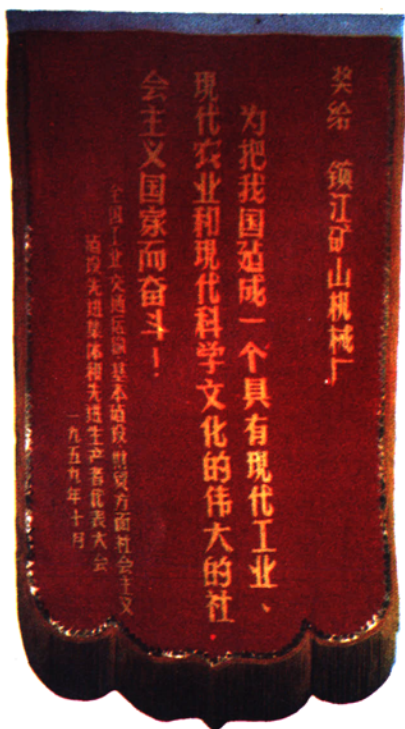 奖给 镇江矿山机械厂
为把我国建成一个具有现代工业、
现代农业和现代科学文化的伟大的社
会主义国家而奋斗！
全国工业、交通运输、基本建设、财贸方面社会主义
建设先进集体和先进生产者代表大会
一九五九年十月